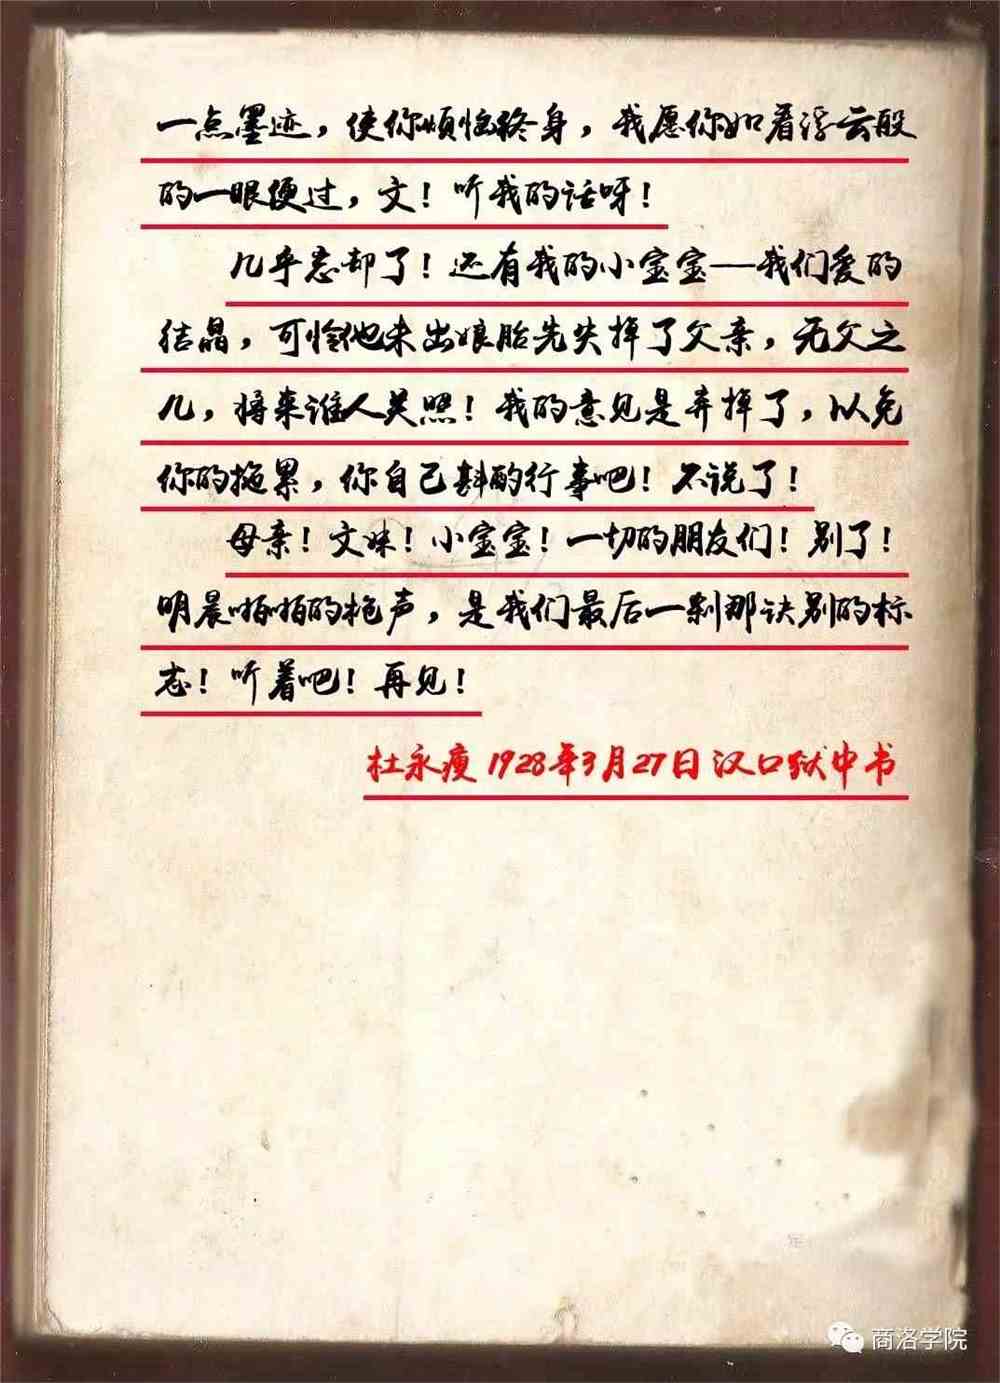 一点墨迹，使你烦恼终身，我愿你如看浮云般
的一眼便过，文！听我的话呀！
几乎忘却了！还有我的小宝宝—我们爱的
结晶，可怜他未出娘胎先失掉了父亲，无父之
儿，将来谁人关照！我的意见是弃掉了，以免
你的拖累，你自己斟酌行事吧！不说了！
母亲！文妹！小宝宝！一切的朋友们！别了！
明晨啪啪的枪声，是我们最后一刹那诀别的标
志！听着吧！再见！
杜永瘦 1928年3月27日汉口狱中书
商洛学院